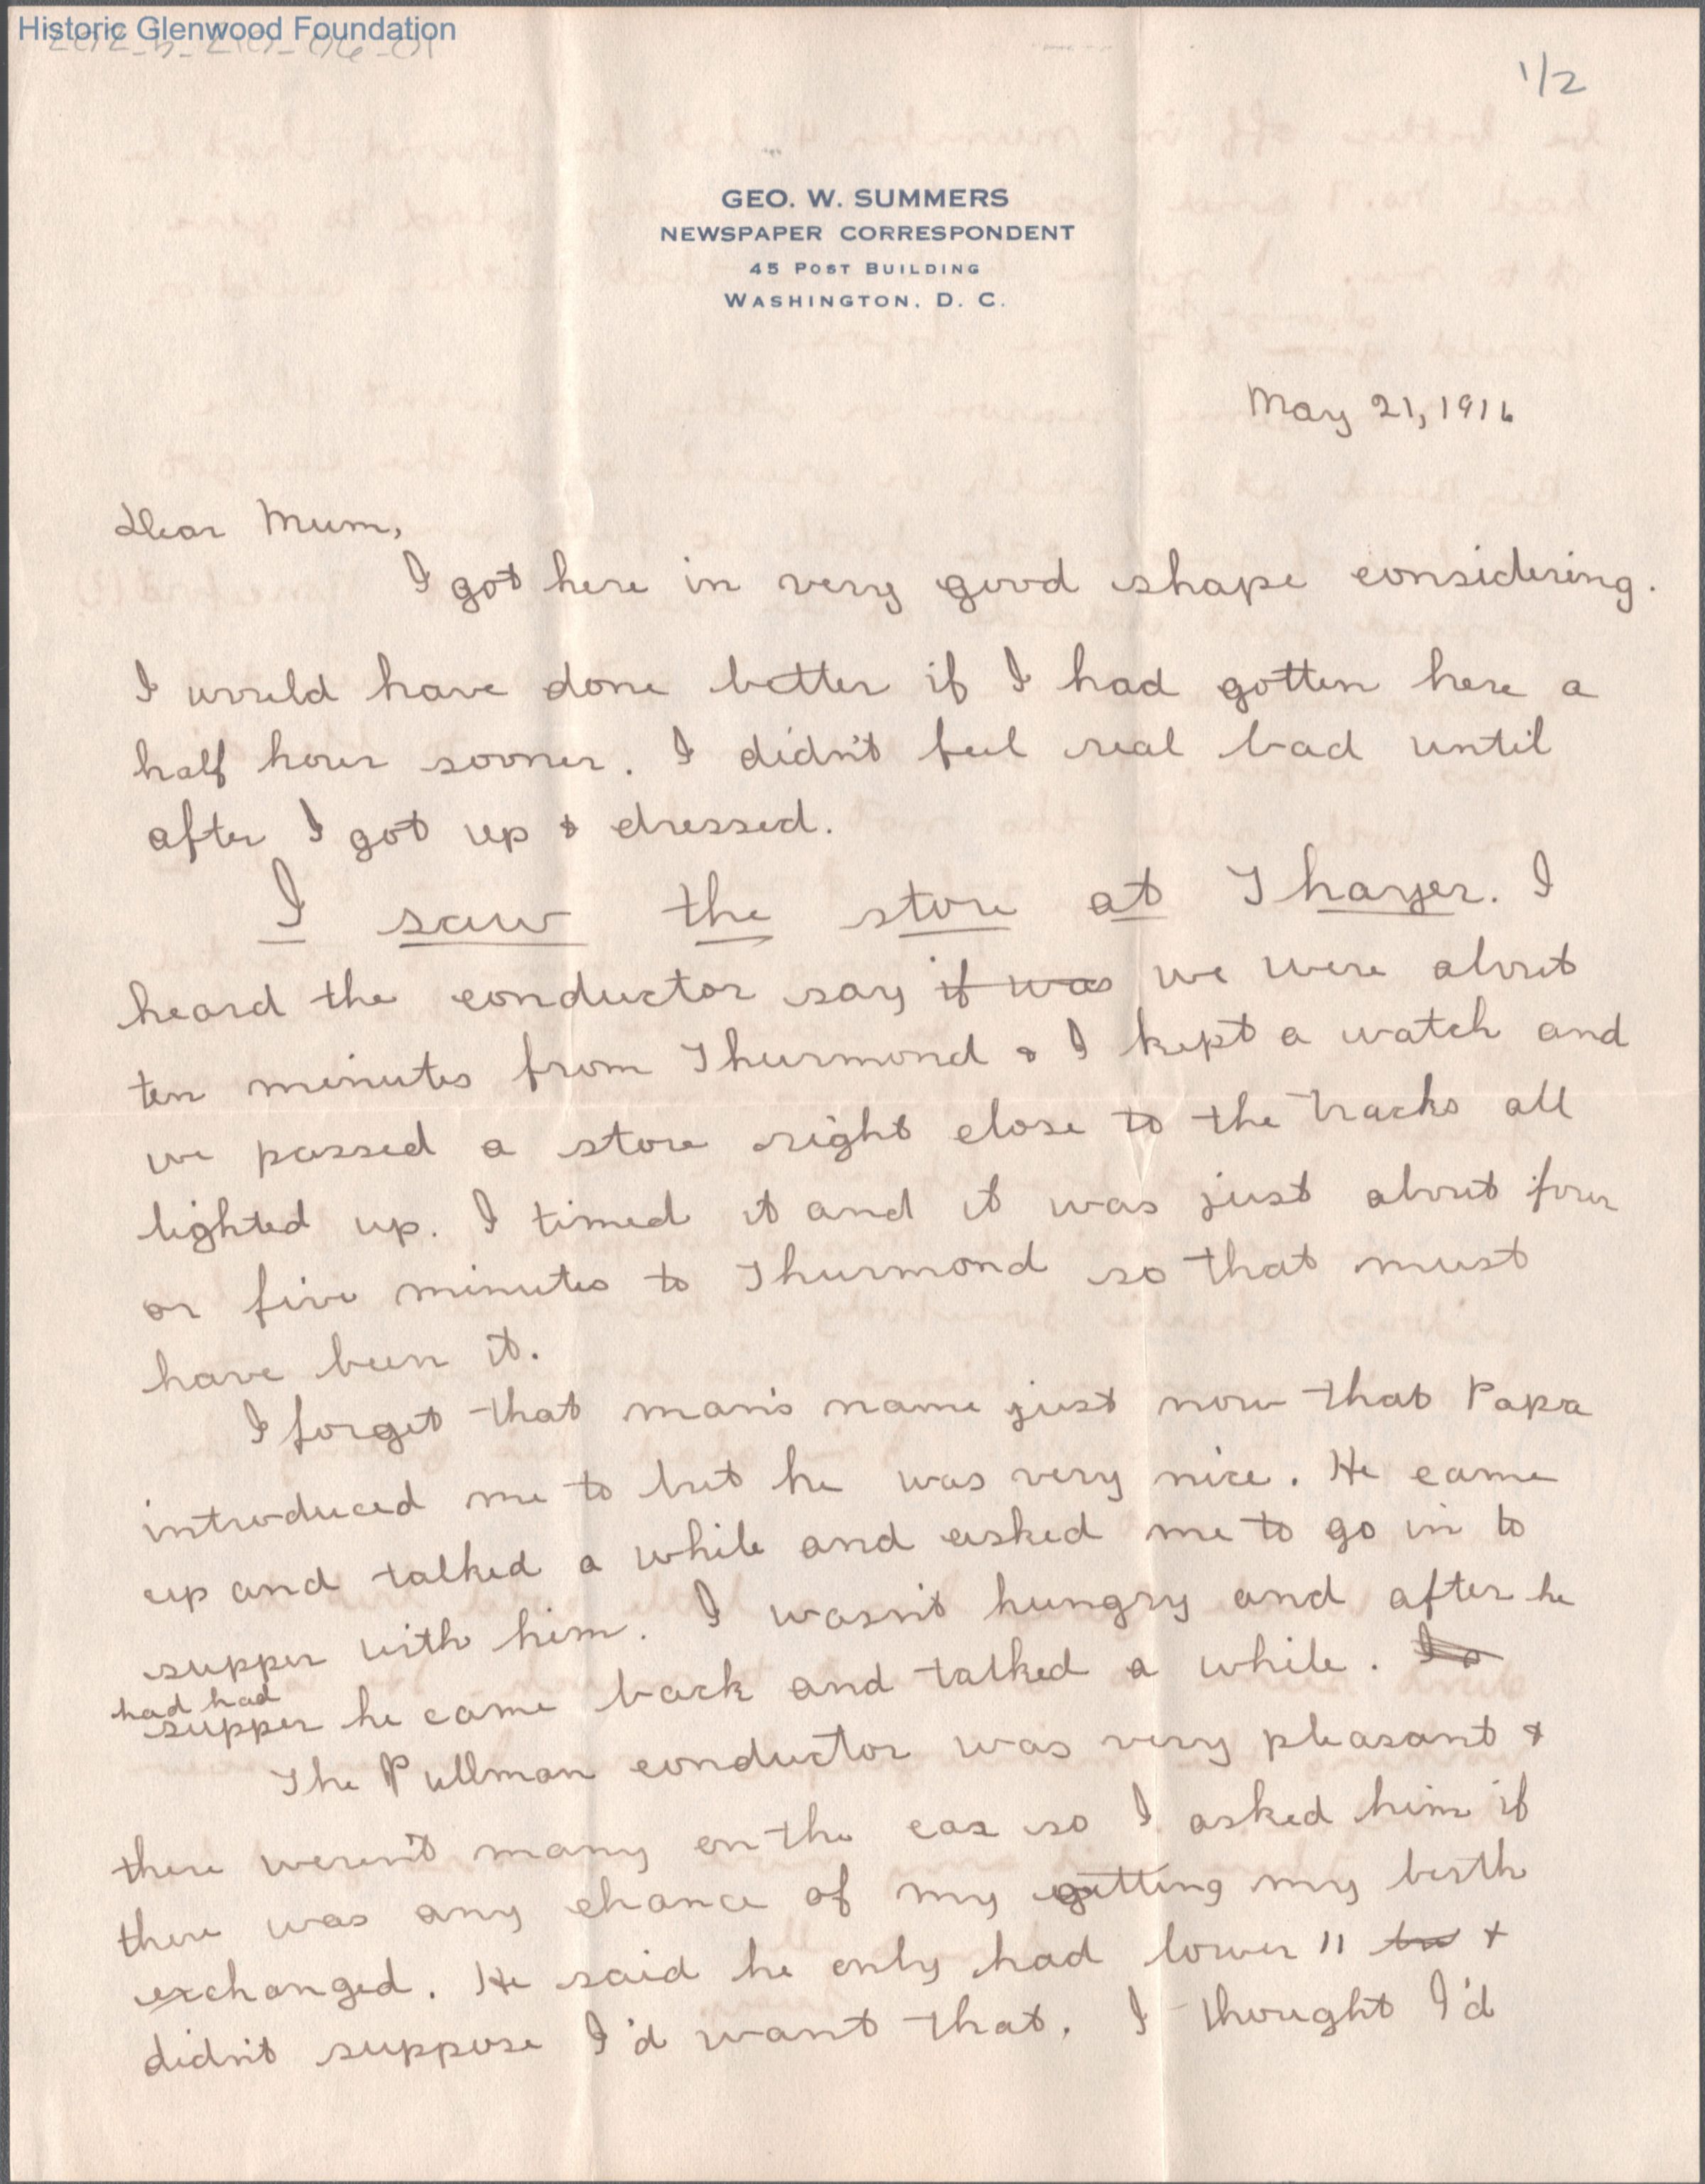 Historic Glenwood Foundation
1/2
GEO. W. SUMMERS
NEWSPAPER CORRESPONDENT
45 POST BUILDING
WASHINGTON, D. C.
May 21, 1916
Dear Mum,
I got here in very good shape considering.
I would have done better if I had gotten here a
half hour sooner. I didn't feel real bad until
after I got up & dressed.
I saw the store at Thayer. I
heard the conductor say it was we were about
ten minutes from Thurmond & I kept a watch and
we passed a store right close to the tracks all
lighted up. I timed it and it was just about four
or five minutes to Thurmond so that must
have been it.
I forget that man's name just now that Papa
introduced me to but he was very nice. He came
up and talked a while and asked me to go in to
supper with him. I wasn't hungry and after he
had had
supper he came back and talked a while.
The Pullman conductor was very pleasant &
there weren't many on the car so I asked him if
there was any chance of my getting my birth
exchanged. He said he only had lower 11 &
didn't suppose I'd want that. I thought I'd